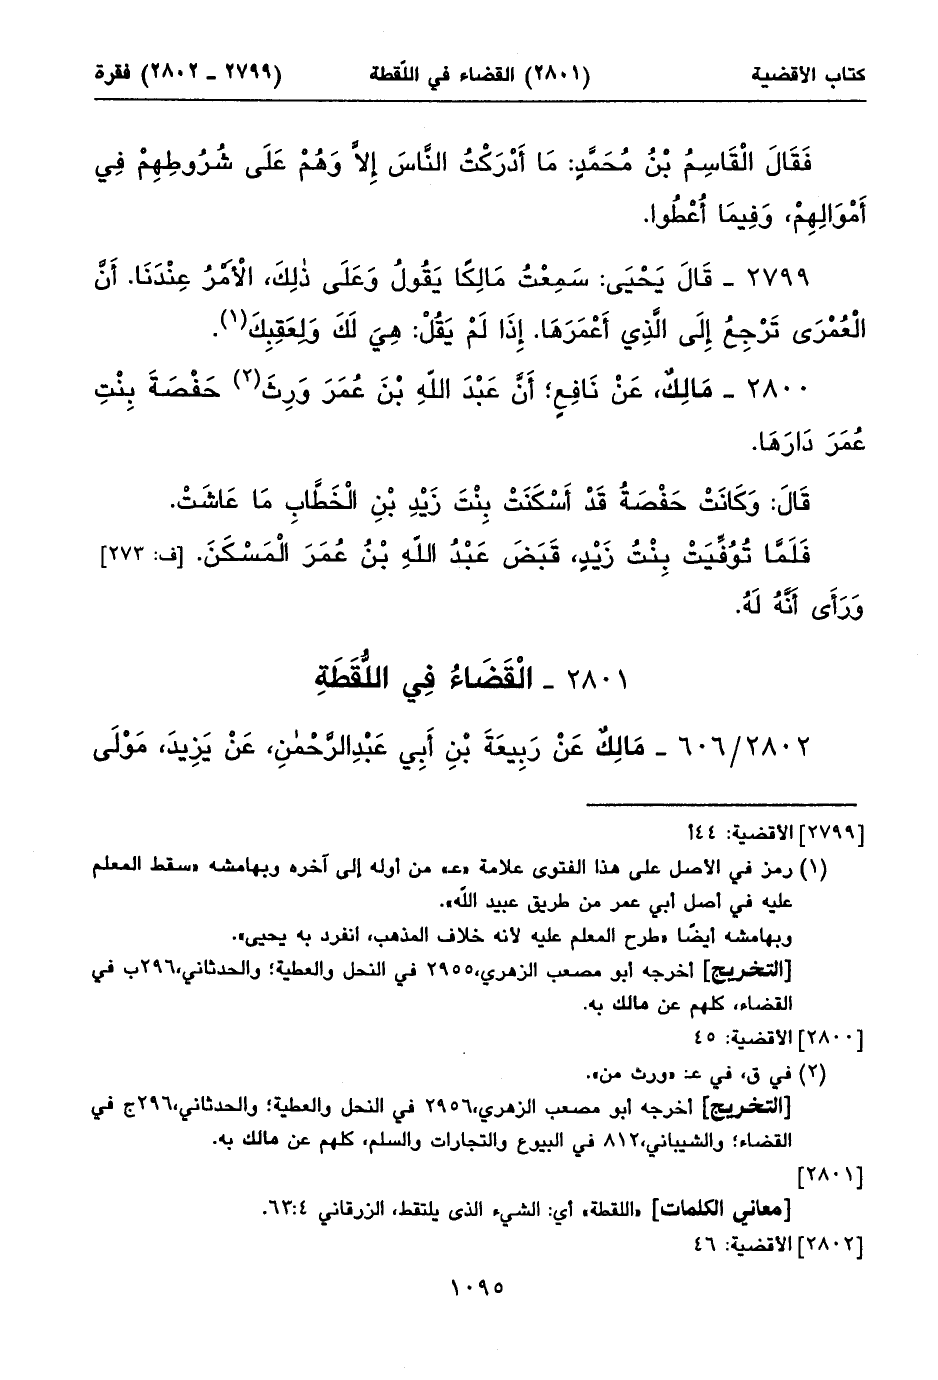 كتاب الأقضية (٢٨٠١) القضاء في اللّقطة (٢٧٩٩ ـ ٢٨٠٢) فقرة
فَقَالَ الْقَاسِمُ بْنُ مُحَمَّدٍ: مَا أَدْرَكْتُ النَّاسَ إِلاَّ وَهُمْ عَلَى شُرُوطِهِمْ فِي
أَمْوَالِهِمْ، وَفِيمَا أُعْطُوا.
٢٧٩٩ ـ قَالَ يَحْيَى: سَمِعْتُ مَالِكًا يَقُولُ وَعَلَى ذٰلِكَ، الْأَمْرُ عِنْدَنَا. أَنَّ
الْعُمْرَى تَرْجِعُ إِلَى الَّذِي أَعْمَرَهَا. إِذَا لَمْ يَقُلْ: هِيَ لَكَ وَلِعَقِبِكَ(١).
٢٨٠٠ ـ مَالِكٌ، عَنْ نَافِعٍ؛ أَنَّ عَبْدَ اللّٰهِ بْنَ عُمَرَ وَرِثَ(٢) حَفْصَةَ بِنْتِ
عُمَرَ دَارَهَا.
قَالَ: وَكَانَتْ حَفْصَةُ قَدْ أَسْكَنَتْ بِنْتَ زَيْدِ بْنِ الْخَطَّابِ مَا عَاشَتْ.
فَلَمَّا تُوُفِّيَتْ بِنْتُ زَيْدٍ، قَبَضَ عَبْدُ اللّٰهِ بْنُ عُمَرَ الْمَسْكَنَ. [ف: ٢٧٣]
وَرَأَى أَنَّهُ لَهُ.
٢٨٠١ ـ الْقَضَاءُ فِي اللُّقَطَةِ
٦٠٦/٢٨٠٢ ـ مَالِكٌ عَنْ رَبِيعَةَ بْنِ أَبِي عَبْدِالرَّحْمٰنِ، عَنْ يَزِيدَ، مَوْلَى
[٢٧٩٩] الأقضية: ٤٤أ
(١) رمز في الأصل على هذا الفتوى علامة «عـ» من أوله إلى آخره وبهامشه «سقط المعلم
عليه في أصل أبي عمر من طريق عبيد اللّٰه».
وبهامشه أيضًا «طرح المعلم عليه لأنه خلاف المذهب، انفرد به يحيى».
[التخريج] أخرجه أبو مصعب الزهري،٢٩٥٥ في النحل والعطية؛ والحدثاني،٢٩٦ب في
القضاء، كلهم عن مالك به.
[٢٨٠٠] الأقضية: ٤٥
(٢) في ق، في عـ: «ورث من».
[التخريج] أخرجه أبو مصعب الزهري،٢٩٥٦ في النحل والعطية؛ والحدثاني،٢٩٦ج في
القضاء؛ والشيباني،٨١٢ في البيوع والتجارات والسلم، كلهم عن مالك به.
[٢٨٠١]
[معاني الكلمات] «اللقطة» أي: الشيء الذى يلتقط، الزرقاني ٤:٦٣.
[٢٨٠٢] الأقضية: ٤٦
١٠٩٥